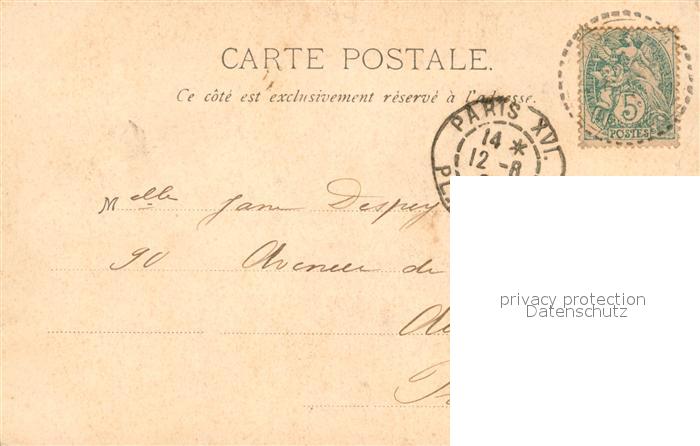 CARTE POSTALE.
Ce côté est exclusivement réservé à l'adresse.
5c
POSTES
PARIS XVI.
14 *
12 - 8
PL
Melle Jane
90 Avenue de
privacy protection
Datenschutz